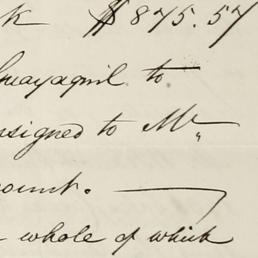 k $875.57
Guayaquil to
nsigned to Mr
ount.
whole of which